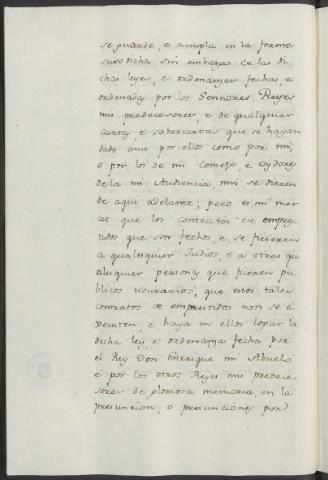 se guarde, e cumpla en la forma
susodicha sin embargo de las di
chas leyes, e ordenanzas fechas, e
ordenadas por los Sennores Reyes
mis predecesores, e de qualquier
cartas, e sobrecartas que se hayan
dado ansi por ellos como por mi,
o por los de mi Consejo, e Oydores
de la mi Audiencia, nin se dieren
de aqui adelante; pero es mi mer
ced que los contratos de empres
tidos que son fechos, e se ficieren
a qualesquier Judios, e a otras qu
alesquier personas que fueren pu
blicos usurarios, que estos tales
contratos de emprestidos non se e
xecuten, e haya en ellos logar la
dicha ley, e ordenanza fecha por
el Rey Don Enrrique mi Abuelo
e por los otros Reyes mis predece
sores de gloriosa memoria, en la
presuncion, o presunciones por